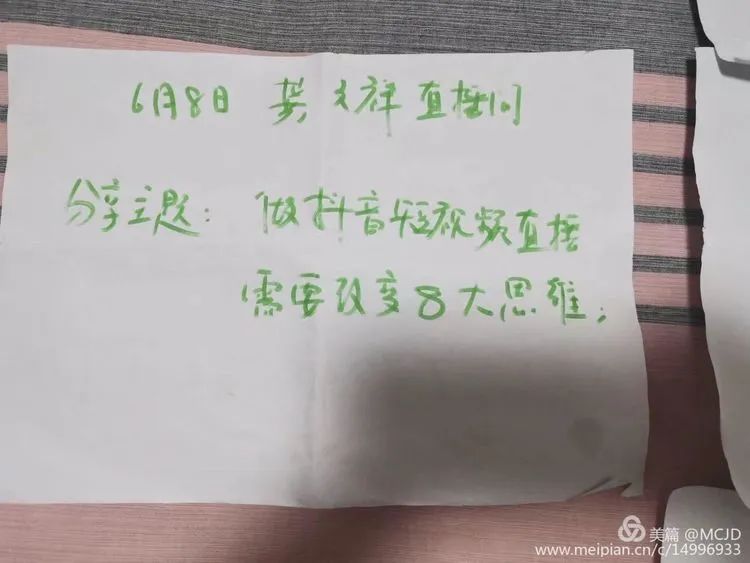 6月8日 龚文祥直播间
分享主题：做抖音短视频直播
需要改变8大思维；
美篇 @MCJD
www.meipian.cn/c/14996933